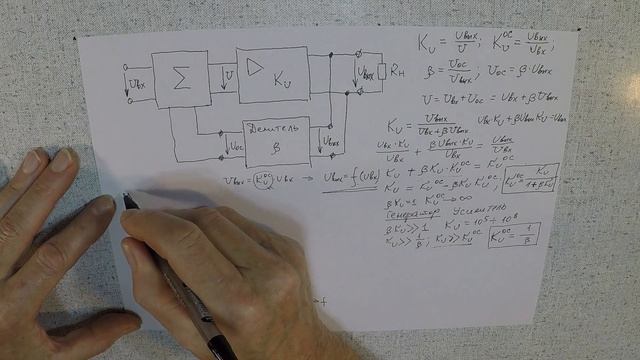 Uвх
Σ
U
Ku
Uвых
Rн
Uос
Делитель
β
Uвых
Uвых = Ku^ос Uвх → Uвых = f(Uвх)
Ku = Uвых/U; Ku^ос = Uвых/Uвх;
β = Uос/Uвых; Uос = β·Uвых
U = Uвх + Uос = Uвх + βUвых
Ku = Uвых/(Uвх + βUвых) Uвх·Ku + βUвых Ku = Uвых
Uвх·Ku/Uвх + βUвых·Ku/Uвх = Uвых/Uвх
Ku + βKu·Ku^ос = Ku^ос
Ku = Ku^ос - βKu·Ku^ос; Ku^ос = Ku/(1+βKu)
βKu=1 Ku^ос → ∞
Генератор Усилитель
βKu>>1 Ku = 10^5 ÷ 10^8
Ku >> 1/β; Ku >> Ku^ос Ku^ос = 1/β
f